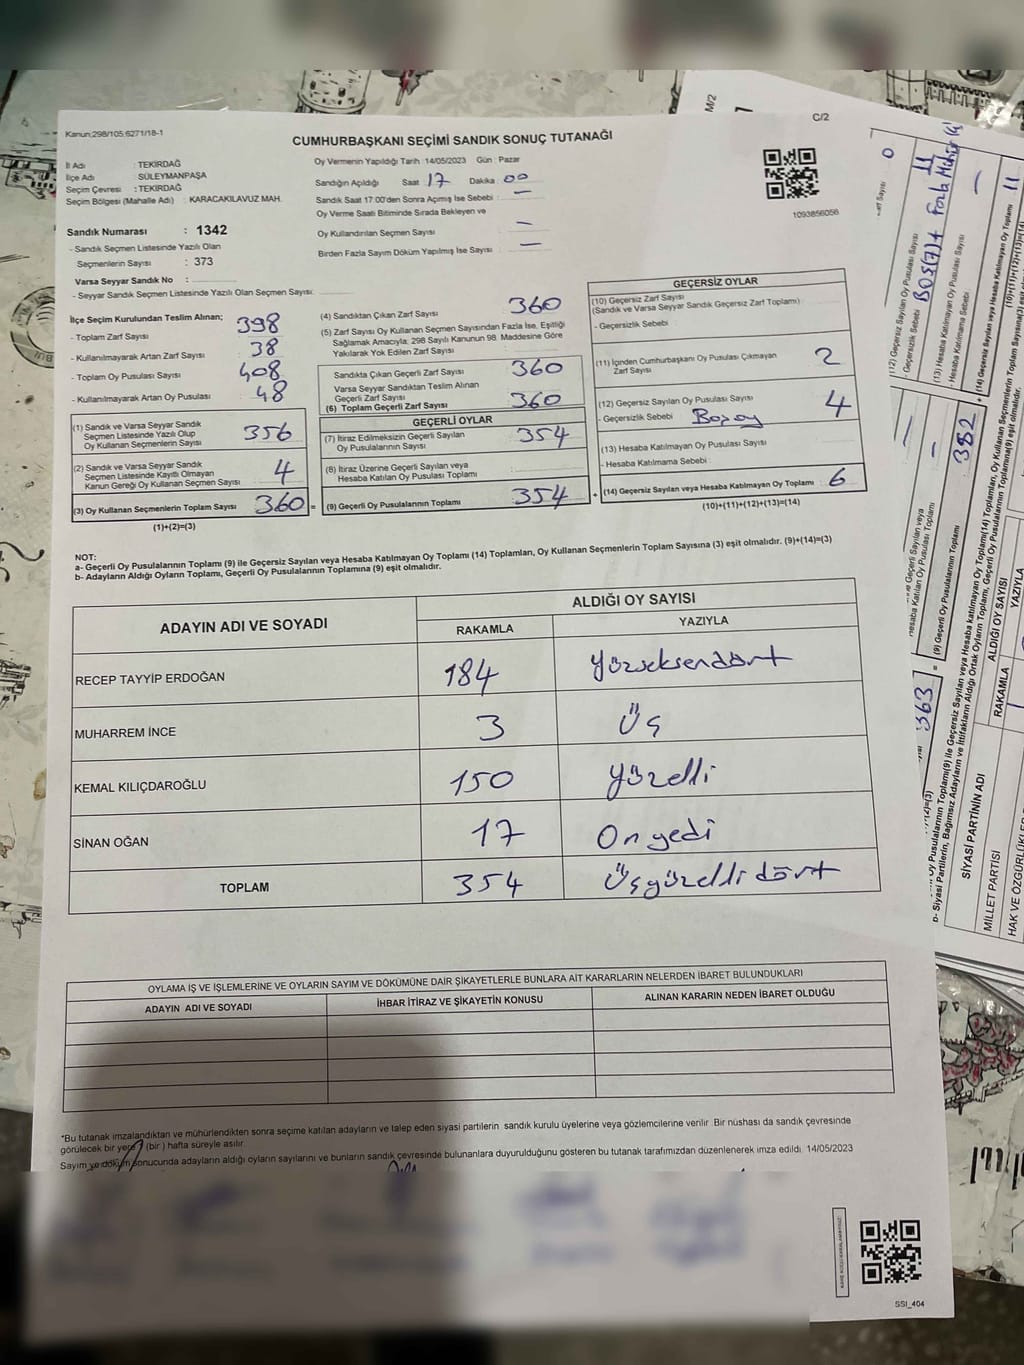 Kanun;298/105;6271/18-1
C/2
CUMHURBAŞKANI SEÇİMİ SANDIK SONUÇ TUTANAĞI
İl Adı : TEKİRDAĞ
İlçe Adı : SÜLEYMANPAŞA
Seçim Çevresi : TEKİRDAĞ
Seçim Bölgesi (Mahalle Adı) : KARACAKILAVUZ MAH.
Sandık Numarası : 1342
- Sandık Seçmen Listesinde Yazılı Olan
Seçmenlerin Sayısı : 373
Varsa Seyyar Sandık No :
- Seyyar Sandık Seçmen Listesinde Yazılı Olan Seçmen Sayısı:
Oy Vermenin Yapıldığı Tarih : 14/05/2023 Gün : Pazar
Sandığın Açıldığı Saat : 17 Dakika : 00
Sandık Saat 17:00'den Sonra Açımış İse Sebebi : —
Oy Verme Saati Bitiminde Sırada Bekleyen ve
Oy Kullandırılan Seçmen Sayısı : —
Birden Fazla Sayım Döküm Yapılmış İse Sayısı : —
1093856056
İlçe Seçim Kurulundan Teslim Alınan;
- Toplam Zarf Sayısı : 398
- Kullanılmayarak Artan Zarf Sayısı : 38
- Toplam Oy Pusulası Sayısı : 408
- Kullanılmayarak Artan Oy Pusulası : 48
(1) Sandık ve Varsa Seyyar Sandık
Seçmen Listesinde Yazılı Olup
Oy Kullanan Seçmenlerin Sayısı : 356
(2) Sandık ve Varsa Seyyar Sandık
Seçmen Listesinde Kayıtlı Olmayan
Kanun Gereği Oy Kullanan Seçmen Sayısı : 4
(3) Oy Kullanan Seçmenlerin Toplam Sayısı : 360 =
(1)+(2)=(3)
(4) Sandıktan Çıkan Zarf Sayısı : 360
(5) Zarf Sayısı Oy Kullanan Seçmen Sayısından Fazla İse, Eşitliği
Sağlamak Amacıyla; 298 Sayılı Kanunun 98. Maddesine Göre
Yakılarak Yok Edilen Zarf Sayısı :
Sandıkta Çıkan Geçerli Zarf Sayısı : 360
Varsa Seyyar Sandıktan Teslim Alınan
Geçerli Zarf Sayısı :
(6) Toplam Geçerli Zarf Sayısı : 360
GEÇERLİ OYLAR
(7) İtiraz Edilmeksizin Geçerli Sayılan
Oy Pusulalarının Toplamı : 354
(8) İtiraz Üzerine Geçerli Sayılan veya
Hesaba Katılan Oy Pusulası Toplamı :
(9) Geçerli Oy Pusulalarının Toplamı : 354 +
GEÇERSİZ OYLAR
(10) Geçersiz Zarf Sayısı
(Sandık ve Varsa Seyyar Sandık Geçersiz Zarf Toplamı) :
- Geçersizlik Sebebi :
(11) İçinden Cumhurbaşkanı Oy Pusulası Çıkmayan
Zarf Sayısı : 2
(12) Geçersiz Sayılan Oy Pusulası Sayısı : 4
- Geçersizlik Sebebi : Boşoy
(13) Hesaba Katılmayan Oy Pusulası Sayısı :
- Hesaba Katılmama Sebebi :
(14) Geçersiz Sayılan veya Hesaba Katılmayan Oy Toplamı : 6
(10)+(11)+(12)+(13)=(14)
NOT:
a- Geçerli Oy Pusulalarının Toplamı (9) ile Geçersiz Sayılan veya Hesaba Katılmayan Oy Toplamı (14) Toplamları, Oy Kullanan Seçmenlerin Toplam Sayısına (3) eşit olmalıdır. (9)+(14)=(3)
b- Adayların Aldığı Oyların Toplamı, Geçerli Oy Pusulalarının Toplamına (9) eşit olmalıdır.
ADAYIN ADI VE SOYADI
ALDIĞI OY SAYISI
RAKAMLA YAZIYLA
RECEP TAYYİP ERDOĞAN 184 Yüzseksendört
MUHARREM İNCE 3 Üç
KEMAL KILIÇDAROĞLU 150 Yüzelli
SİNAN OĞAN 17 On yedi
TOPLAM 354 Üçyüzellidört
OYLAMA İŞ VE İŞLEMLERİNE VE OYLARIN SAYIM VE DÖKÜMÜNE DAİR ŞİKAYETLERLE BUNLARA AİT KARARLARIN NELERDEN İBARET BULUNDUKLARI
ADAYIN ADI VE SOYADI İHBAR İTİRAZ VE ŞİKAYETİN KONUSU ALINAN KARARIN NEDEN İBARET OLDUĞU
*Bu tutanak imzalandıktan ve mühürlendikten sonra seçime katılan adayların ve talep eden siyasi partilerin sandık kurulu üyelerine veya gözlemcilerine verilir. Bir nüshası da sandık çevresinde
görülecek bir yere 1 (bir) hafta süreyle asılır.
Sayım ve döküm sonucunda adayların aldığı oyların sayılarını ve bunların sandık çevresinde bulunanlara duyurulduğunu gösteren bu tutanak tarafımızdan düzenlenerek imza edildi. 14/05/2023
SSI_404
M/2
Zarf Sayısı : 0
(12) Geçersiz Sayılan Oy Pusulası Sayısı : 11
Geçersizlik Sebebi : BOŞ(7)+ Fazla Mühür (4)
(13) Hesaba Katılmayan Oy Pusulası Sayısı : —
- Hesaba Katılmama Sebebi :
(14) Geçersiz Sayılan veya Hesaba Katılmayan Oy Toplamı : 11
(10)+(11)+(12)+(13)=(14)
Geçerli Sayılan veya
Hesaba Katılan Oy Pusulası Toplamı : —
(9) Geçerli Oy Pusulalarının Toplamı : 352 +
363 =
SİYASİ PARTİNİN ADI
ALDIĞI OY SAYISI
RAKAMLA YAZIYLA
MİLLET PARTİSİ
HAK VE ÖZGÜRLÜKLER